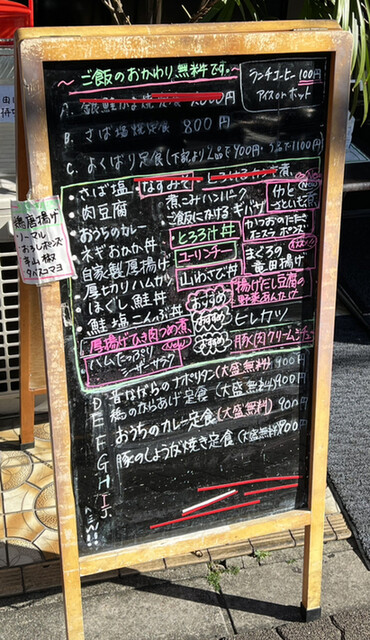 ~ ご飯のおかわり無料です。~
ランチコーヒー 100円
アイスorホット
A. 銀鮭かま焼定食 1.000円
B. さば塩焼定食 800円
C. よくばり定食(下記より2品で900円・3品で1100円)
・さば塩
・肉豆腐
・おうちのカレー
・ネギおかか丼
・自家製厚揚げ
・厚切りハムカツ
・ほぐし鮭丼
・鮭塩こんぶ丼
・厚揚げひき肉つめ煮
・ハムたっぷりシーザーサラダ New
・なすみそ
煮こみハンバーグ
ご飯にかける ギバサ
とろろ汁丼
ユーリンチー
山わさび丼
おすすめ
おすすめ
かつおのたたき
まぐろの竜田揚げ
揚げだし豆腐の野菜あんかけ
ヒレカツ
豚(肉)クリームシチュー
鶏唐揚げ
・ノーマル
・おろしポンズ
・青山椒
・タバスコマヨ
D 昔ながらのナポリタン(大盛無料) 900円
E 鶏のからあげ定食(大盛無料) 900円
F おうちのカレー定食(大盛無料) 900円
G 豚のしょうが焼き定食(大盛無料) 900円
H
I
J